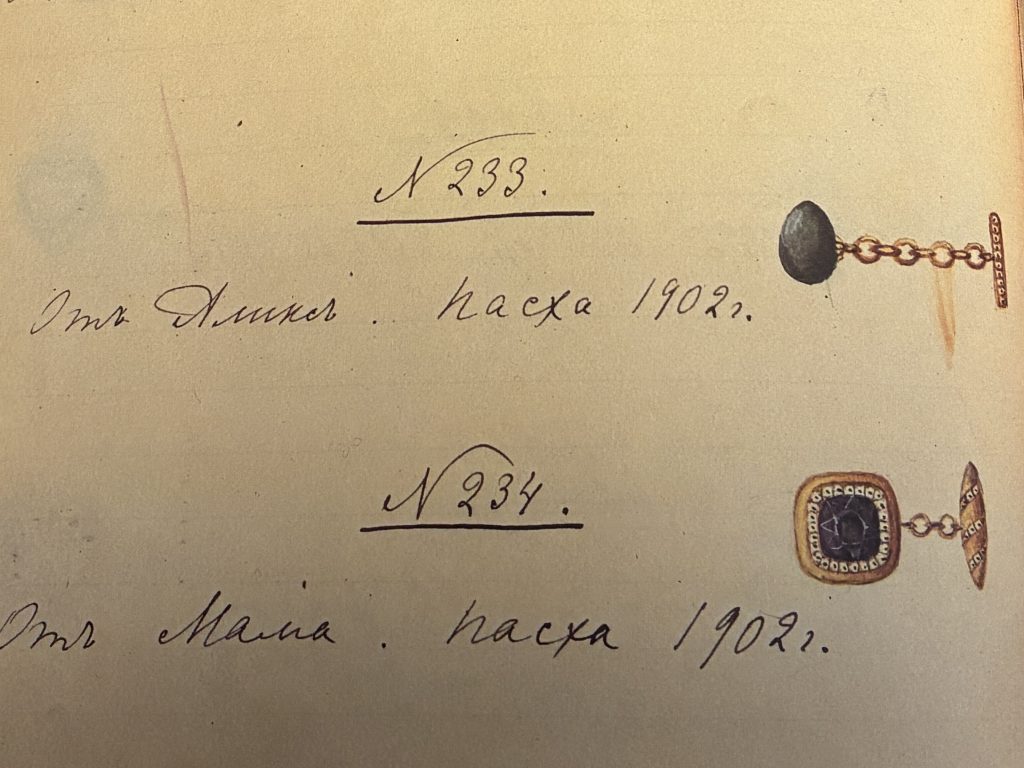 N 233.
Отъ Аликсъ. Пасха 1902 г.
N 234.
Отъ Мама. Пасха 1902 г.